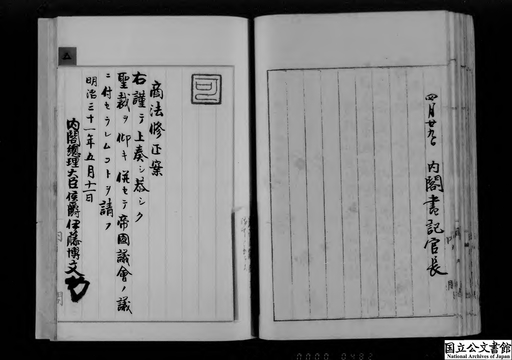 四月廿九日
内閣書記官長
可
商法修正案
右謹テ上奏シ恭シク
聖裁ヲ仰キ併セテ帝國議會ノ議
ニ付セラレムコトヲ請フ
明治三十一年五月十二日
内閣總理大臣侯爵伊藤博文
五
0000 0482
国立公文書館
National Archives of Japan